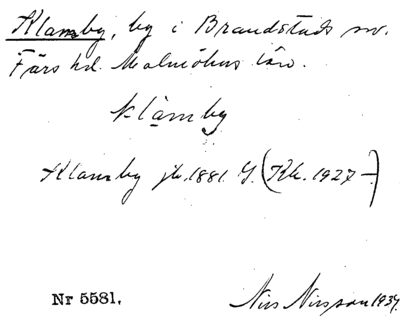 Klamby, by i Brandstads sn.
Färs hd. Malmöhus län.
klamby
Klamby jb. 1881 G. (Kk. 1927 –)
Nr 5581.
Nils Nilsson 1934.